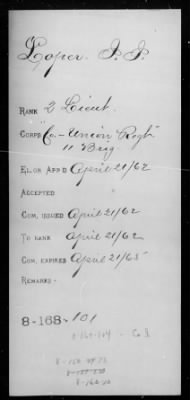 Loper. J. J.
RANK 2 Lieut.
CORPS Co- Union Regt
11 Brig
EL. OR APP'D April 21/62
ACCEPTED "
COM. ISSUED April 21/62
TO RANK April 21/62
COM. EXPIRES April 21/65
REMARKS -
8-168-101